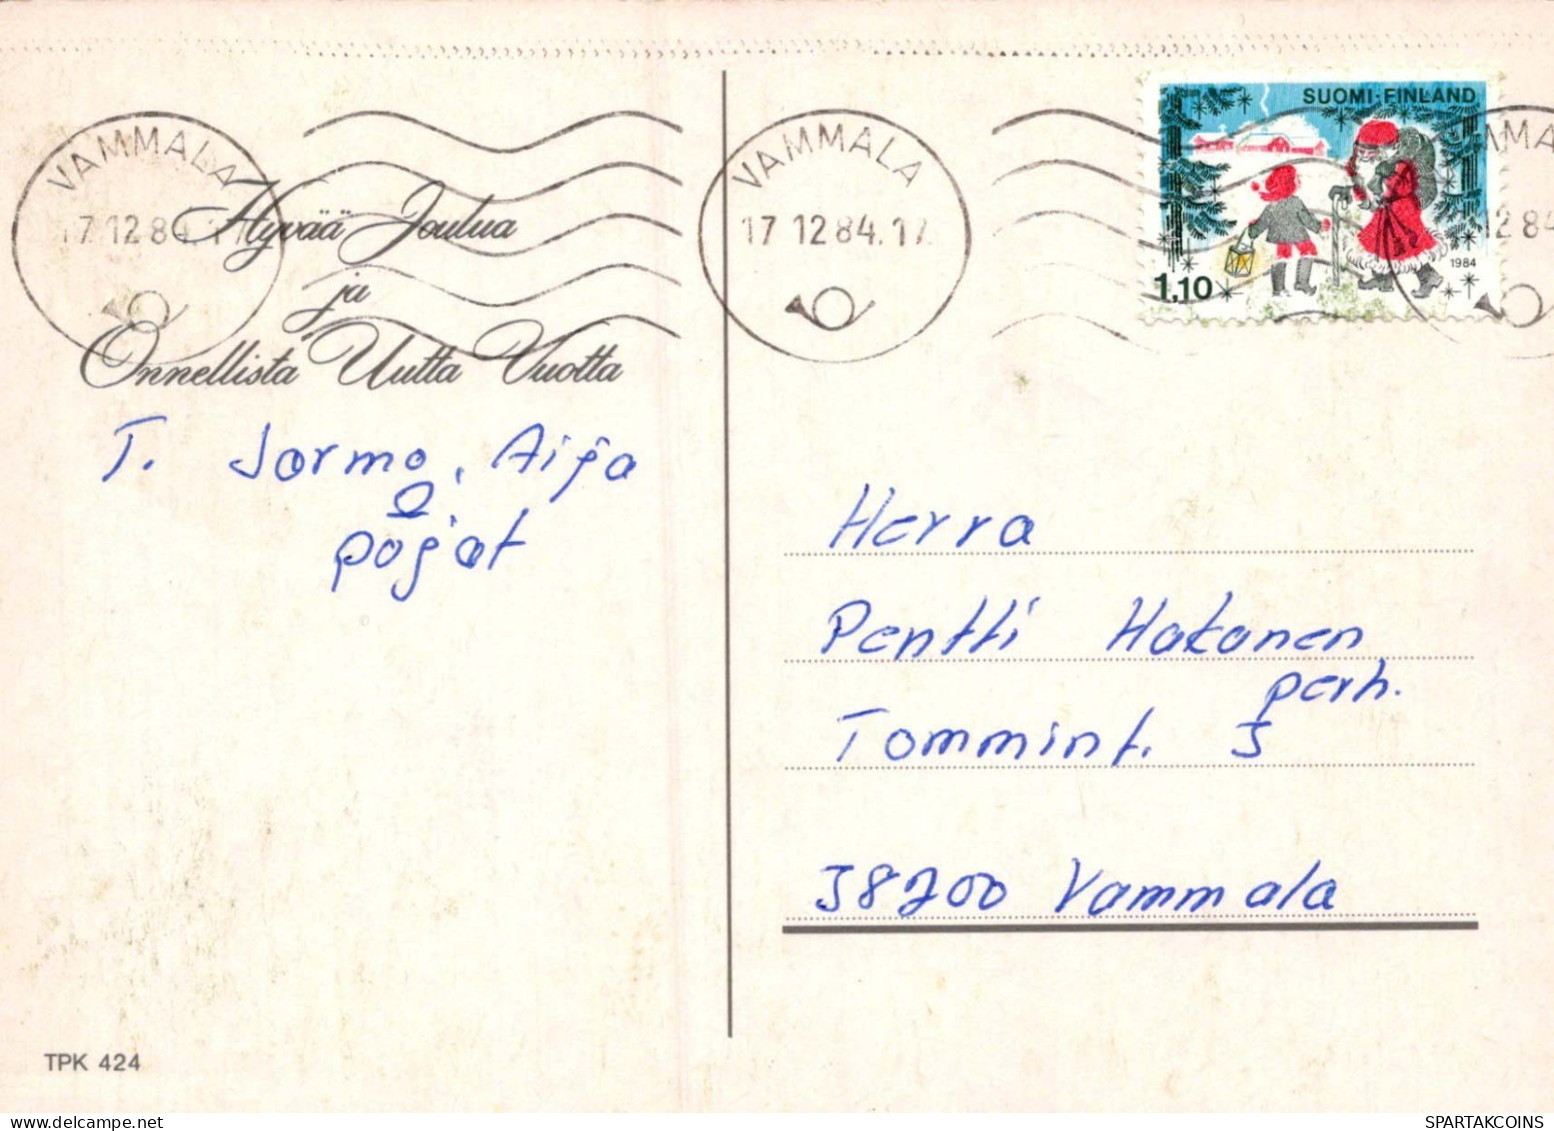 SUOMI-FINLAND
1984
1,10
VAMMALA
17.12.84.17
VAMMALA
17.12.84.17
12.84
Hyvää Joulua
ja
Onnellista Uutta Vuotta
T. Jormo, Aija
pojat
Herra
Pentti Hakanen
perh.
Tommint. 3
38200 Vammala
TPK 424
SPARTAKCOINS